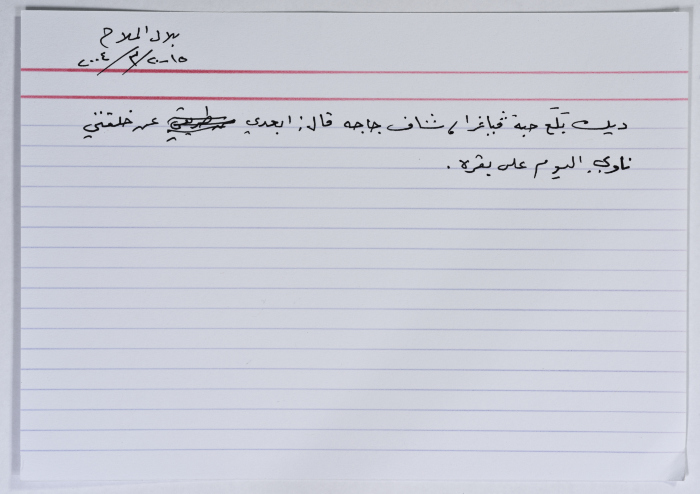 بلال الملاح
٢٠٠٤/٣/٢٠٠١٥
ديك بَلَع حبة ڤياغرا، شاف جاجه قال: ابعدي عن خلقتي
ناوي اليوم على بقره.